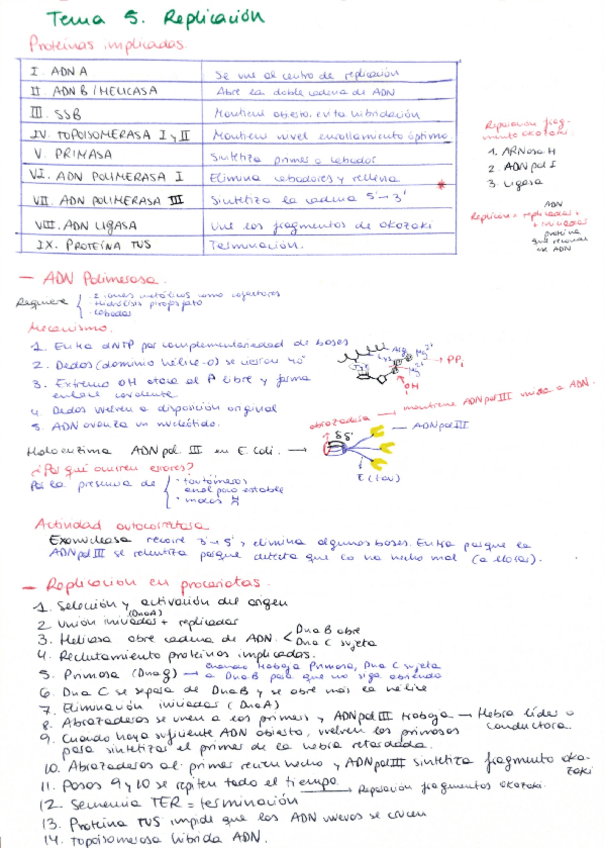 Tema 5. Replicación
Proteínas implicadas.
I. ADN A Se une al centro de replicación
II. ADN B / HELICASA Abre la doble cadena de ADN
III. SSB Mantiene abierto, evita hibridación
IV. TOPOISOMERASA I y II Mantiene nivel enrollamiento óptimo.
V. PRIMASA Sintetiza primer o cebador
VI. ADN POLIMERASA I Elimina cebadores y rellena
VII. ADN POLIMERASA III Sintetiza la cadena 5'→3'
VIII. ADN LIGASA Une los fragmentos de okazaki
IX. PROTEÍNA TUS Terminación.
Reparación frag-
mento okazaki.
1. ARNasa H
2. ADN pol I
3. Ligasa
ADN
Replicón = replicador +
+ iniciador
proteína
que reconoce
ADN
— ADN Polimerasa.
Requiere
· 2 iones metálicos como cofactores
· Hidrólisis pirofosfato
· Cebador
Mecanismo.
1. Entra dNTP por complementariedad de bases
2. Dedos (dominio hélice-O) se cierran 40°
3. Extremo OH ataca al P libre y forma
enlace covalente.
4. Dedos vuelven a disposición original
5. ADN avanza un nucleótido.
Arg
Lys
Mg²⁺
Mg²⁺
→ PPi
OH
abrazadera — mantiene ADN pol III unida a ADN.
Holoenzima ADN pol. III en E. Coli. →
δδ'
— ADN pol III
τ (tau)
¿Por qué ocurren errores?
Por la presencia de
· tautómeros
enol poco estable
Actividad autocorrectora
Exonucleasa recorre 3'→5' y elimina algunas bases. Entra porque la
ADN pol III se ralentiza porque detecta que lo ha hecho mal
— Replicación en procariotas.
1. Selección y activación del origen
(DnaA)
2. Unión iniciador + replicador
3. Helicasa abre cadena de ADN. < Dna B abre
Dna C sujeta
4. Reclutamiento proteínas implicadas.
5. Primasa (Dna G) → cuando trabaja Primasa, Dna C sujeta
a Dna B para que no siga abriendo
6. Dna C se separa de Dna B y se abre más la hélice
7. Eliminación iniciador (DnaA)
8. Abrazaderas se unen a los primers y ADN pol III trabaja → Hebra líder o
conductora
9. Cuando haya suficiente ADN abierto, vuelven las primasas
para sintetizar el primer de la hebra retardada.
10. Abrazaderas al primer recien hecho y ADN pol III sintetiza fragmento oka-
zaki
11. Pasos 9 y 10 se repiten todo el tiempo → Reparación fragmentos okazaki.
12. Secuencia TER = terminación
13. Proteína TUS impide que los ADN nuevos se crucen
14. Topoisomerasa hibrida ADN.